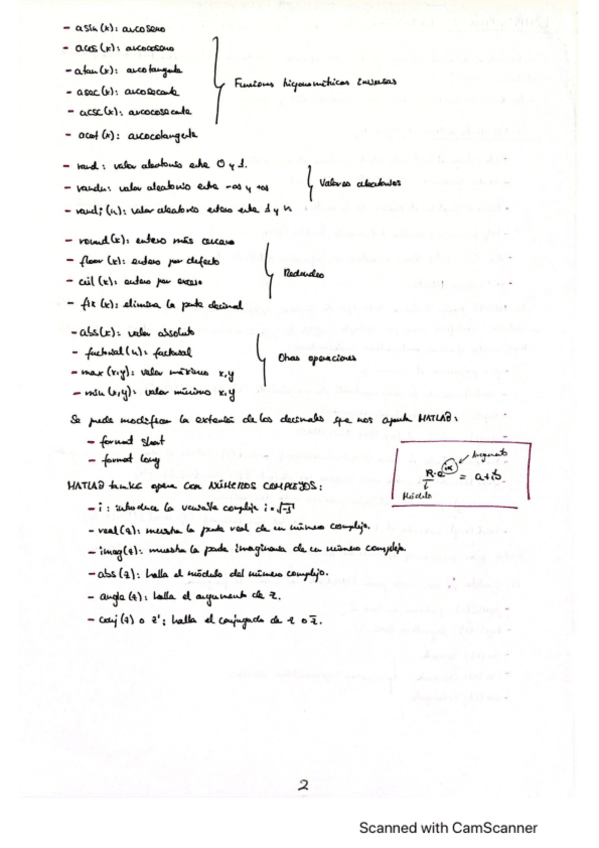 - asin(x): arcoseno
- acos(x): arcocoseno
- atan(x): arcotangente
- asec(x): arcosecante
- acsc(x): arcocosecante
- acot(x): arcocotangente
Funciones trigonométricas inversas
- rand: valor aleatorio entre 0 y 1.
- randn: valor aleatorio entre -∞ y +∞
- randi(n): valor aleatorio entero entre 1 y n
Valores aleatorios
- round(x): entero más cercano
- floor(x): entero por defecto
- ceil(x): entero por exceso
- fix(x): elimina la parte decimal
Redondeo
- abs(x): valor absoluto
- factorial(n): factorial
- max(x,y): valor máximo x,y
- min(x,y): valor mínimo x,y
Otras operaciones
Se puede modificar la extensión de los decimales que nos aporta MATLAB:
- format short
- format long
R·e^(iα) = a+ib
Argumento
Módulo
MATLAB también opera con NÚMEROS COMPLEJOS:
- i: introduce la variable compleja i=√-1
- real(z): muestra la parte real de un número complejo.
- imag(z): muestra la parte imaginaria de un número complejo.
- abs(z): halla el módulo del número complejo.
- angle(z): halla el argumento de z.
- conj(z) o z': halla el conjugado de z o z̄.
2
Scanned with CamScanner